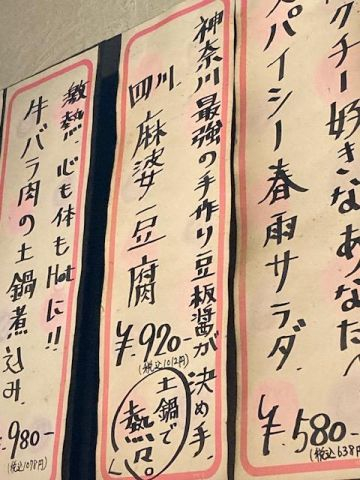 クチー好きなあなた!
スパイシー春雨サラダ
¥580-
(税込638円)
神奈川最強の手作り豆板醤が決め手.
四川麻婆豆腐
¥920-
(税込1012円)
土鍋で
熱々。
激熱.心も体もHotに!!
牛バラ肉の土鍋煮込み.
¥980-
(税込1078円)